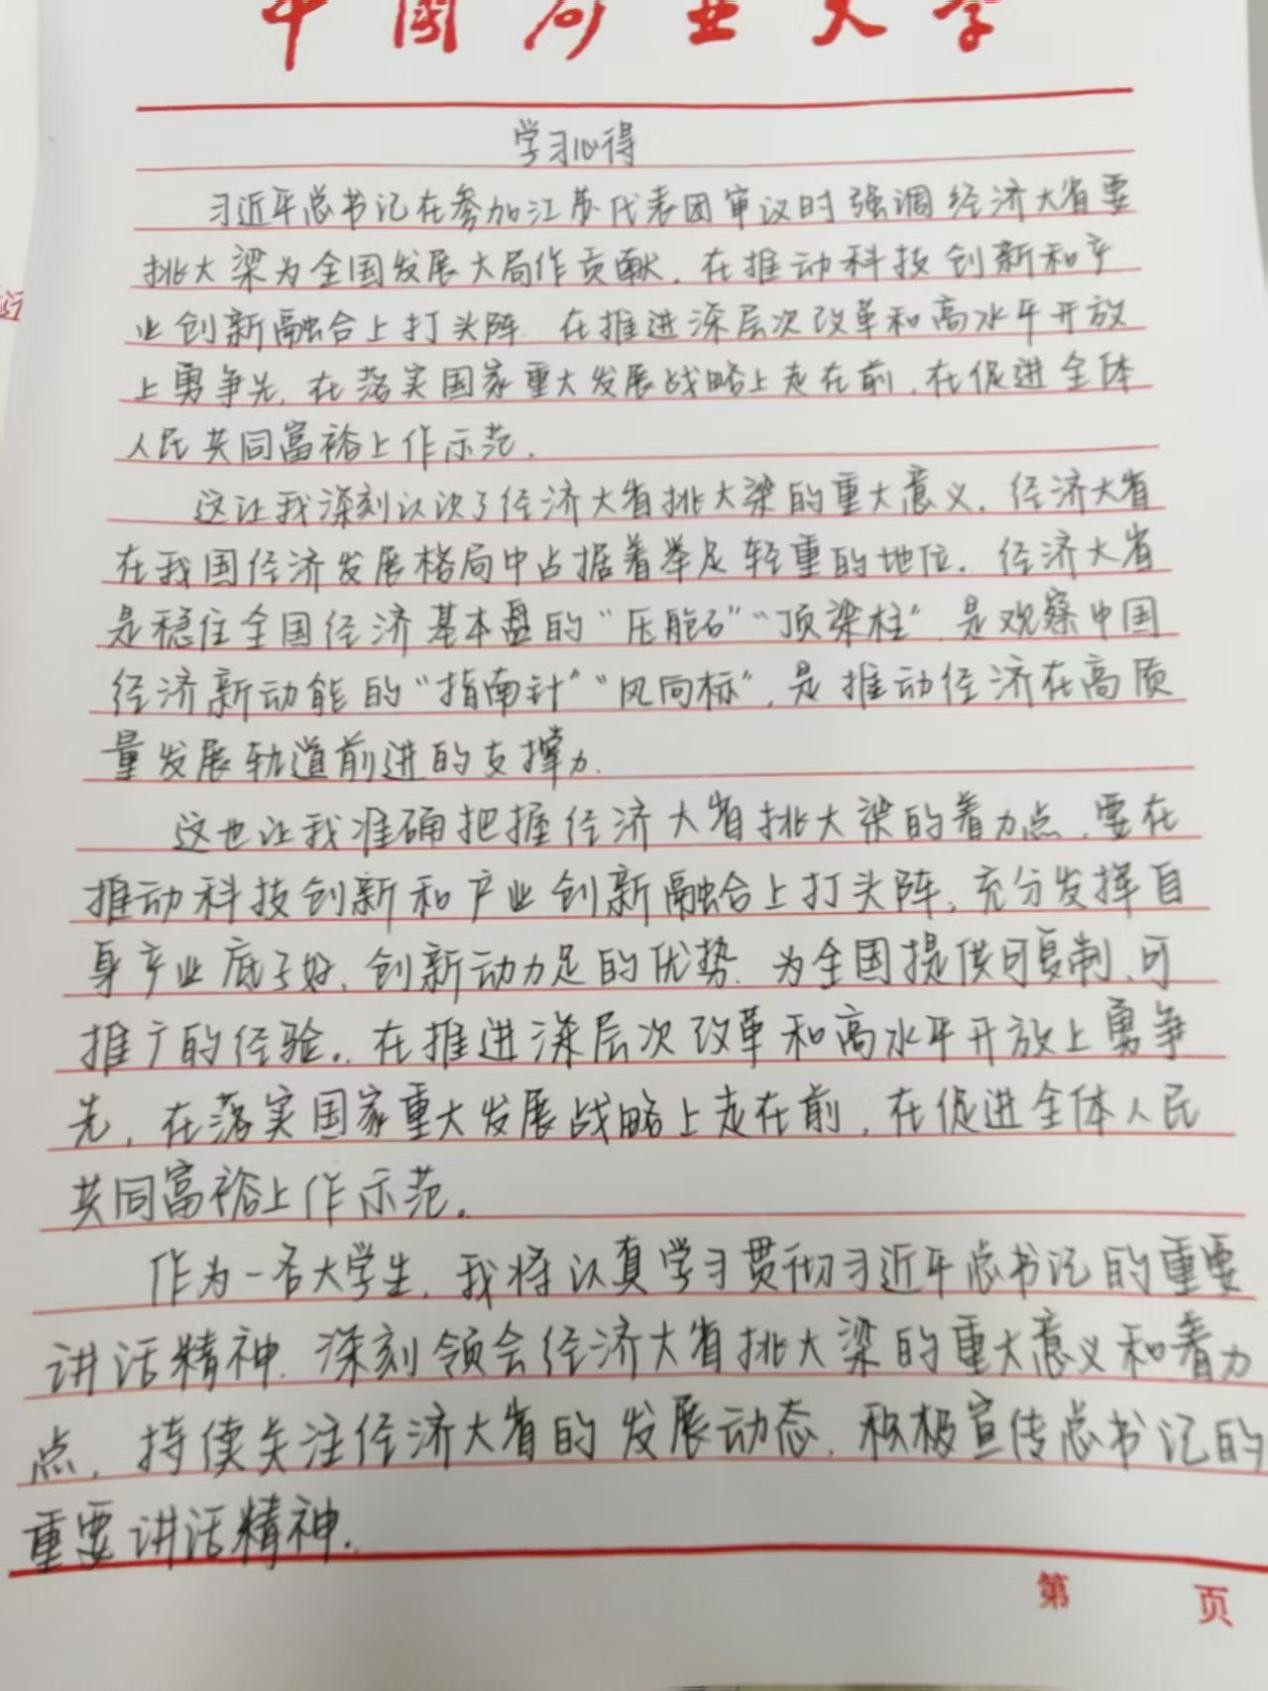 中国矿业大学
学习心得
习近平总书记在参加江苏代表团审议时强调经济大省要
挑大梁为全国发展大局作贡献，在推动科技创新和产
业创新融合上打头阵，在推进深层次改革和高水平开放
上勇争先，在落实国家重大发展战略上走在前，在促进全体
人民共同富裕上作示范。
这让我深刻认识了经济大省挑大梁的重大意义。经济大省
在我国经济发展格局中占据着举足轻重的地位。经济大省
是稳住全国经济基本盘的“压舱石”“顶梁柱”，是观察中国
经济新动能的“指南针”“风向标”，是推动经济在高质
量发展轨道前进的支撑力。
这也让我准确把握经济大省挑大梁的着力点，要在
推动科技创新和产业创新融合上打头阵，充分发挥自
身产业底子好、创新动力足的优势，为全国提供可复制、可
推广的经验。在推进深层次改革和高水平开放上勇争
先，在落实国家重大发展战略上走在前，在促进全体人民
共同富裕上作示范。
作为一名大学生，我将认真学习贯彻习近平总书记的重要
讲话精神，深刻领会经济大省挑大梁的重大意义和着力
点，持续关注经济大省的发展动态，积极宣传总书记的
重要讲话精神。
第 页